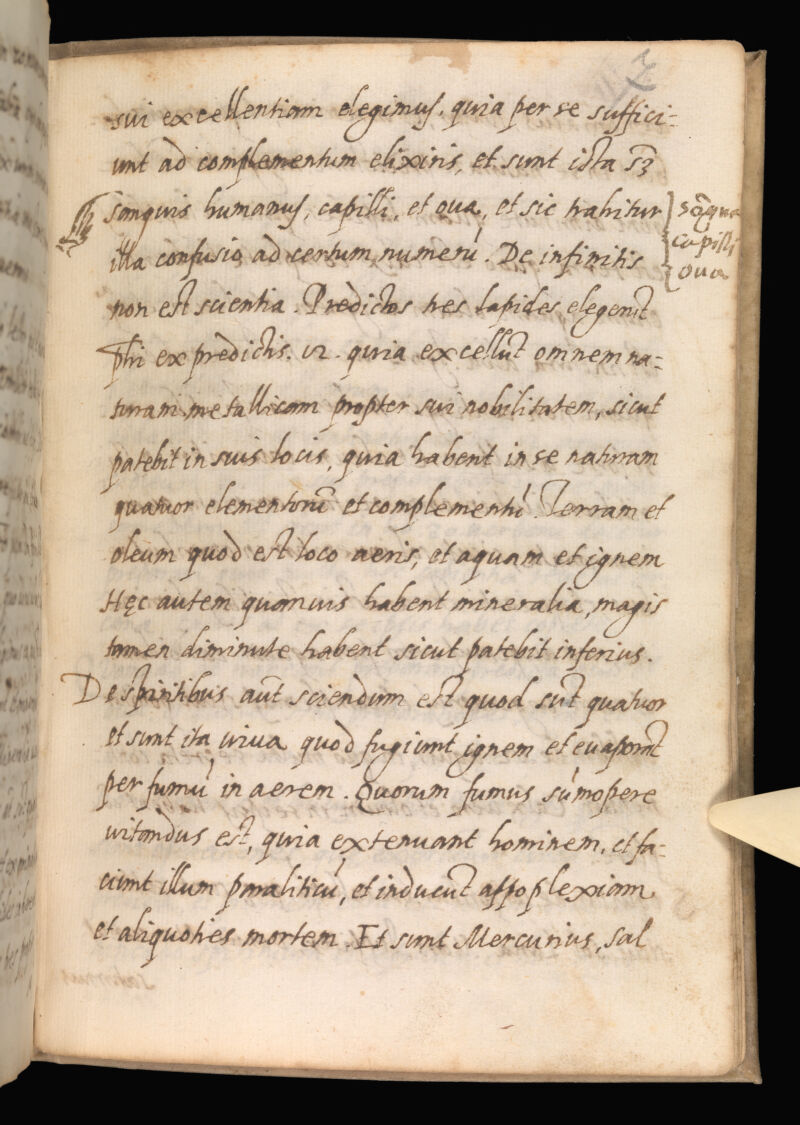 sui excellentiam elegimus. quia per se suffici-
unt ad complementum elixiris, et sunt ista sʒ
sanguis humanus, capilli, et oua, et sic trahitur
illa confusio ad certum numerū. De infinitis
non est scientia. Predictos tres lapides elegerūt
phi ex predictis. 12. quia excellūt omnem na-
turam metallicam propter sui nobilitatem, sicut
patebit in suis locis, quia habent in se naturam
quatuor elementorū et complementū. Terram et
oleum quod est loco aeris, et aquam et ignem
Hęc autem quamuis habent mineralia, magis
tamen diminute habent sicut patebit inferius.
De spiritibus aūt sciendum est quod sūt quatuor
et sunt ita uiua quod fugiunt ignem et euaporāt
per fumū in aerem. Quorum fumus sūmopere
uitandus est, quia extenuant hominem, et fa-
ciunt illum paraliticū, et inducūt appoplexiam
et aliquoties mortem. Et sunt Mercurius, sal
capilli
oua